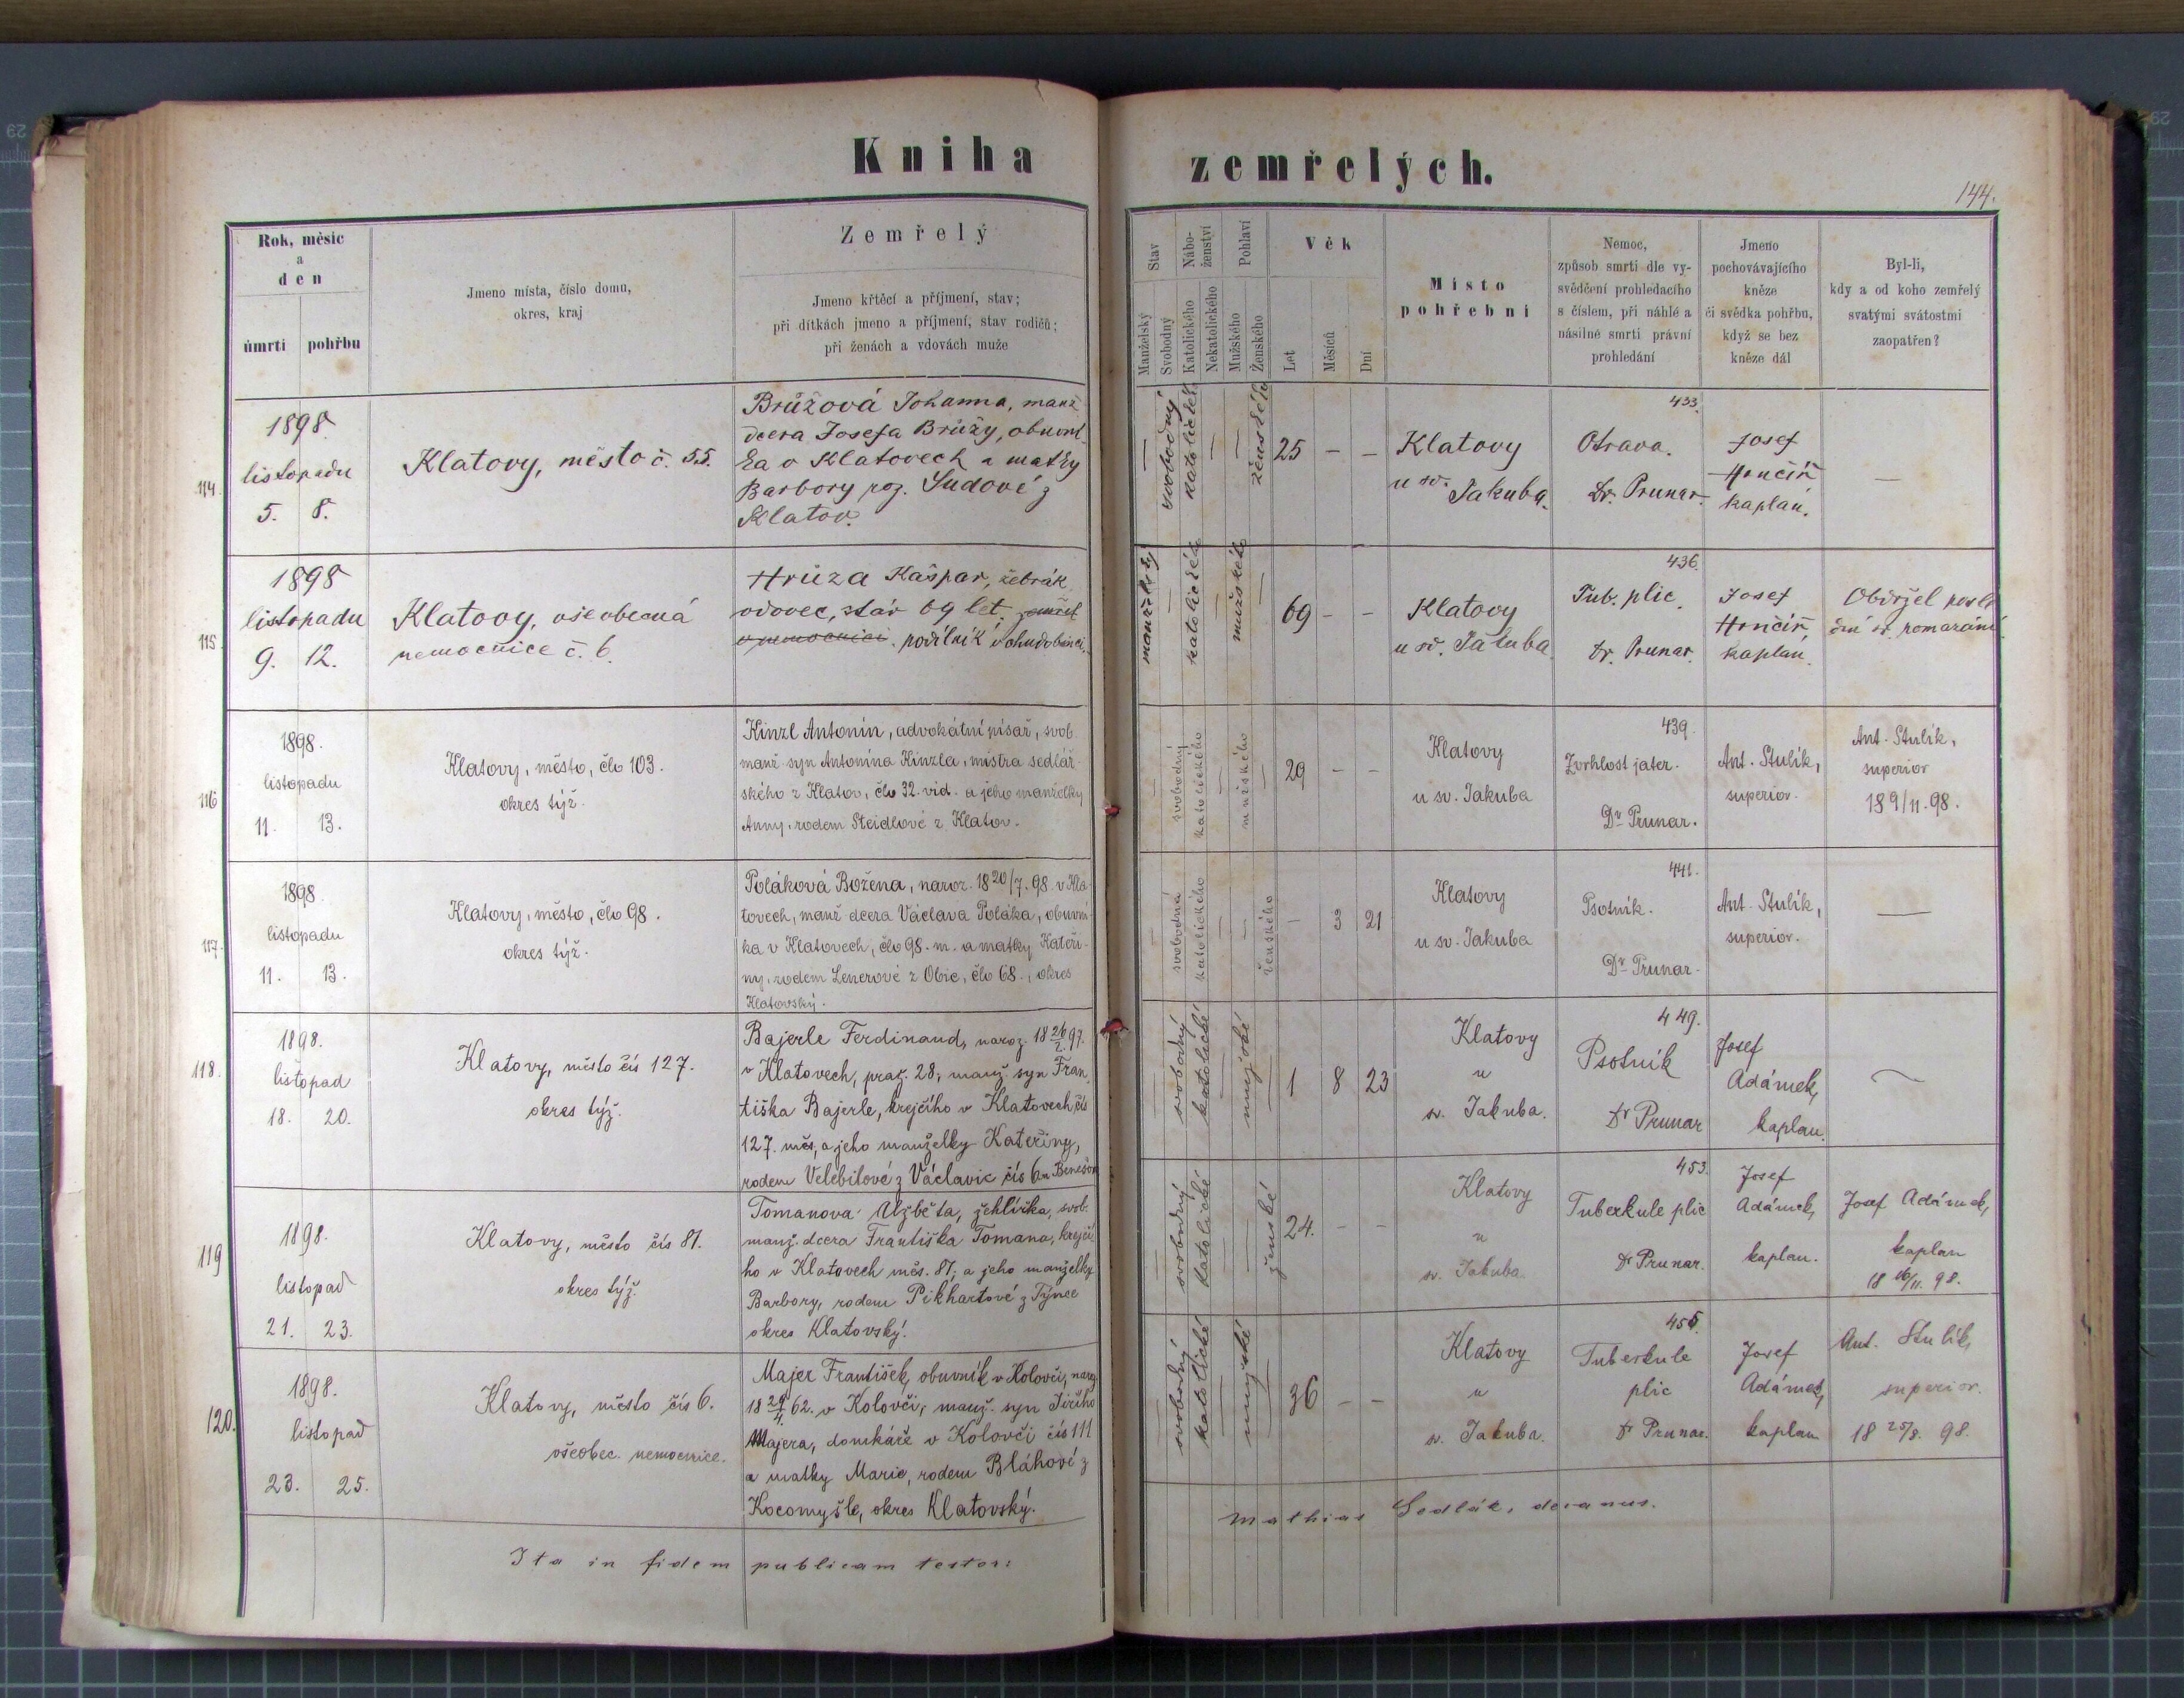 Kniha zemřelých.
144.
Rok, měsíc
a
den
úmrtí pohřbu
Jmeno místa, číslo domu,
okres, kraj
Zemřelý
Jmeno křtěcí a příjmení, stav;
při dítkách jmeno a příjmení, stav rodičů;
při ženách a vdovách muže
Stav
Manželský
Svobodný
Nábo-
ženství
Katolického
Nekatolického
Pohlaví
Mužského
Ženského
Věk
Let
Měsíců
Dní
Místo
pohřební
Nemoc,
způsob smrti dle vy-
svědčení prohledacího
s číslem, při náhlé a
násilné smrti právní
prohledání
Jmeno
pochovávajícího
kněze
či svědka pohřbu,
když se bez
kněze dál
Byl-li,
kdy a od koho zemřelý
svatými svátostmi
zaopatřen?
114.
1898
listopadu
5. 8.
Klatovy, město č. 55.
Brůžová Johanna, manž.
dcera Josefa Brůžy, obuvní-
ka v Klatovech a matky
Barbory roz. Sudové z
Klatov.
— svobodný katolického — — ženského
25 – –
Klatovy
u sv. Jakuba.
433.
Otrava.
Dr. Prunar.
Josef
Hončíř
kaplan.
—
115.
1898
listopadu
9. 12.
Klatovy, všeobecná
nemocnice č. 6.
Hrůza Kašpar, žebrák
vdovec, stár 69 let, zemřel
v nemocnici. podílník v chudobinci.
manželský — katolického — mužského —
69 – –
Klatovy
u sv. Jakuba.
436.
Tub. plic.
Dr. Prunar.
Josef
Hončíř,
kaplan.
Obdržel posle
dní sv. pomazání.
116
1898.
listopadu
11. 13.
Klatovy, město, člo 103.
okres týž.
Kinzl Antonín, advokátní písař, svob.
manž. syn Antonína Kinzla, mistra sedlář-
ského z Klatov, člo 32. vid. a jeho manželky
Anny, rodem Steidlové z Klatov.
— svobodný katolického — mužského —
29 – –
Klatovy
u sv. Jakuba
439.
Zvrhlost jater.
Dr Prunar.
Ant. Stulík,
superior.
Ant. Stulík,
superior
18 9/11. 98.
117.
1898.
listopadu
11. 13.
Klatovy, město, člo 98.
okres týž.
Poláková Božena, naroz. 18 20/7. 98. v Kla-
tovech, manž. dcera Václava Poláka, obuvní-
ka v Klatovech, člo 98. m. a matky Kateři-
ny, rodem Lenerové z Obic, člo 68., okres
Klatovský.
— svobodná katolického — — ženského
– 3 21
Klatovy
u sv. Jakuba
441.
Psotník.
Dr Prunar.
Ant. Stulík,
superior.
—
118.
1898.
listopad
18. 20.
Klatovy, město čís 127.
okres týž.
Bajerle Ferdinand, naroz. 18 26/2 97.
v Klatovech, praž. 28, manž. syn Fran-
tiška Bajerle, krejčího v Klatovech čís
127. měs, a jeho manželky Kateřiny,
rodem Velebilové z Václavic čís 6 u Benešov
— svobodný katolické — mužské —
1 8 23
Klatovy
u
sv. Jakuba.
449.
Psotník
Dr Prunar
Josef
Adámek,
kaplan.
—
119
1898.
listopad
21. 23.
Klatovy, město čís 81.
okres týž.
Tomanova Alžběta, žehlířka, svob.
manž. dcera Františka Tomana, krejčí-
ho v Klatovech měs. 81, a jeho manželky
Barbory, rodem Pikhartové z Týnce
okres Klatovský.
— svobodný katolické — — ženské
24. – –
Klatovy
u
sv. Jakuba
453.
Tuberkule plic
Dr Prunar.
Josef
Adámek,
kaplan.
Josef Adámek,
kaplan
18 16/11. 98.
120.
1898.
listopad
23. 25.
Klatovy, město čís 6.
všeobec. nemocnice.
Majer František, obuvník v Kolovči, naroz
18 29/4 62. v Kolovči, manž. syn Jiřího
Majera, domkáře v Kolovči čís 111
a matky Marie, rodem Bláhové z
Kocomyšle, okres Klatovský.
— svobodný katolické — mužské —
36 – –
Klatovy
u
sv. Jakuba.
455.
Tuberkule
plic
Dr Prunar.
Josef
Adámek,
kaplan
Ant. Stulík,
superior.
18 25/8. 98.
Ita in fidem publicam testor:
Mathias Sedlák, decanus.